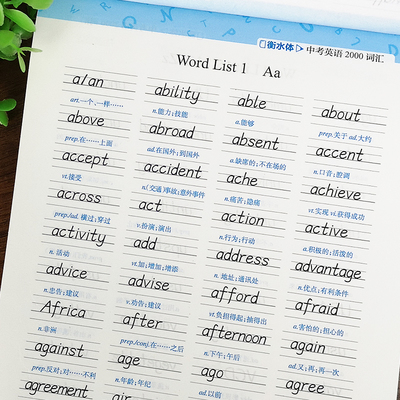 衡水体 中考英语 2000 词汇
Word List 1 Aa
a/an ability able about
art.一个,一样…… n.能力;技能 a.能够 prep.关于 ad.大约
above abroad absent accent
prep.在……上面 ad.在国外;到国外 a.缺席的;不在场的 n.口音;腔调
accept accident ache achieve
vt.接受 n.(交通)事故;意外事件 n.痛苦;隐痛 vt.实现 vi.获得成功
across act action active
prep./ad. 横过;穿过 v.扮演;演出 n.行为;行动 a.积极的;活泼的
activity add address advantage
n. 活动 vt.加;增加;增添 n. 地址;通讯处 n.优点;有利条件
advice advise afford afraid
n.忠告;建议 v.劝告;建议 vt.负担得起;抽得出 a.害怕的;担心的
Africa after afternoon again
n.非洲 prep./conj.在……之后 n.下午;午后 ad.又;再;再一次
against age ago agree
prep.反对;对……不利 n.年龄;年纪 ad.以前
agreement air